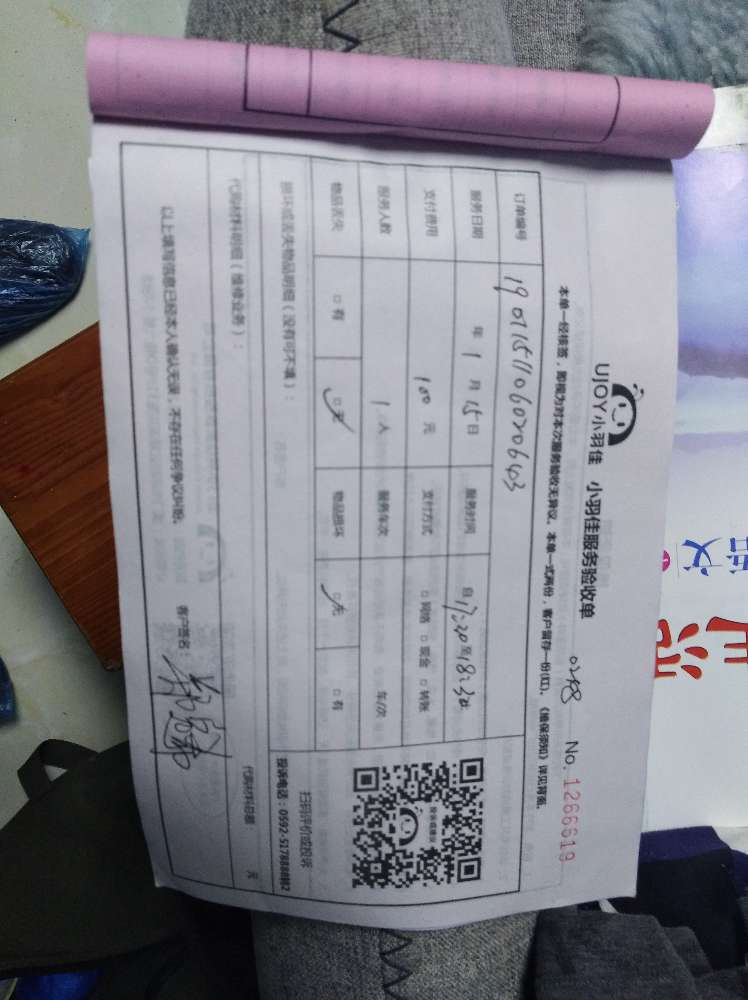 UJOY小羽佳 小羽佳服务验收单 0248 No. 1266619
本单一经核签，即视为对本次服务验收无异议。本单一式两份，客户留存一份(红)，《维保须知》详见背面。
订单编号 19011511060206403
服务日期 年 1 月 15 日 服务时间 自 17:30 至 18:30
支付费用 100 元 支付方式 □网络 □现金 □转账
服务人数 1 人 服务车次 车/次
物品丢失 □有 □无 物品损坏 □无 □有
损坏或丢失物品明细（没有可不填）：
扫码评价或投诉
投诉电话：0592-5178888转2
代购材料明细（维修业务）： 代购材料总额： 元
以上填写信息已经本人确认无误，不存在任何争议纠纷。 客户签名：
语文